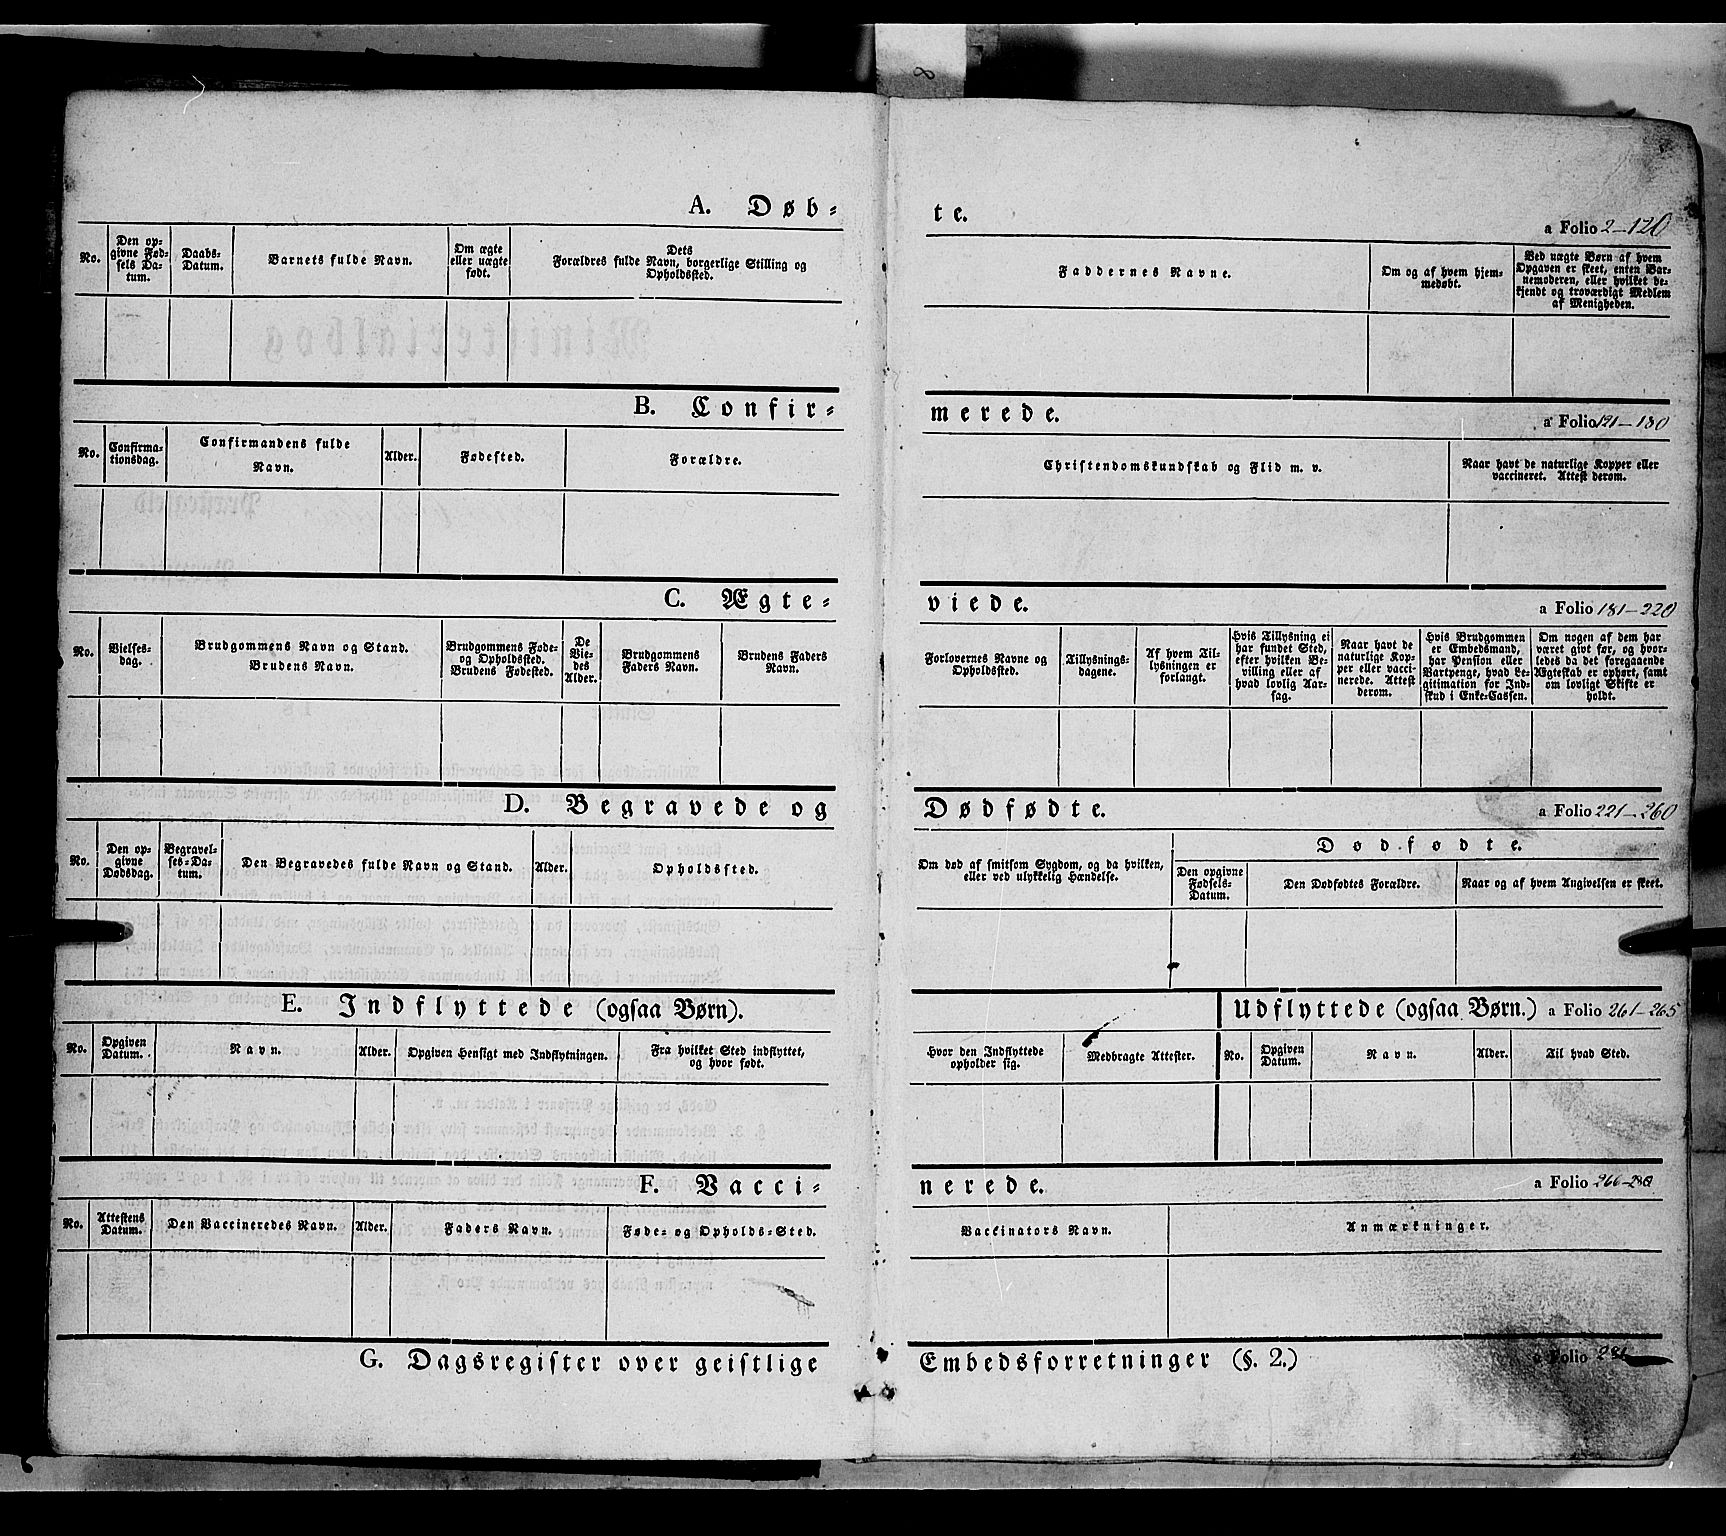 8
A. Døb-
te.
a Folio 2-120
No.
Den op-
givne Fød-
sels Da-
tum.
Daabs-
Datum.
Barnets fulde Navn.
Om ægte
eller uægte
født.
Dets
Forældres fulde Navn, borgerlige Stilling og
Opholdssted.
Faddernes Navne.
Om og af hvem hjem-
medøbt.
Ved uægte Børn af hvem
Opgaven er skeet, enten Bar-
nemoderen, eller hvilket be-
kjendt og troværdigt Medlem
af Menigheden.
B. Confir-
merede.
a Folio 121-180
No.
Confirma-
tionsdag.
Confirmandens fulde
Navn.
Alder.
Fødested.
Forældre.
Christendomskundskab og Flid m. v.
Naar havt de naturlige Kopper eller
vaccineret. Attest derom.
C. Ægte-
viede.
a Folio 181-220
No.
Vielses-
dag.
Brudgommens Navn og Stand.
Brudens Navn.
Brudgommens Føde-
og Opholdssted.
Brudens Fødested.
De
Vie-
des
Alder.
Brudgommens
Faders Navn.
Brudens Faders
Navn.
Forlovernes Navne og
Opholdssted.
Tillysnings-
dagene.
Af hvem Til-
lysningen er
forlangt.
Hvis Tillysning ei
har fundet Sted,
efter hvilken Be-
villing eller af
hvad lovlig Aar-
sag.
Naar havt de
naturlige Kop-
per eller vacci-
nerede. Attest
derom.
Hvis Brudgommen
er Embedsmand,
har Pension eller
Vartpenge, hvad Le-
gitimation for Ind-
skud i Enke-Cassen.
Om nogen af dem har
været givt før, og hvor-
ledes da det foregaaende
Ægteskab er ophørt, samt
om lovligt Skifte er
holdt.
D. Begravede og
Dødfødte.
a Folio 221-260
No.
Den op-
givne
Dødsdag.
Begravel-
ses-Da-
tum.
Den Begravedes fulde Navn og Stand.
Alder.
Opholdssted.
Om død af smitsom Sygdom, og da hvilken,
eller ved ulykkelig Hændelse.
Dødfødte.
Den opgivne
Fødsels-
Datum.
Den Dødfødtes Forældre.
Naar og af hvem Angivelsen er skeet.
E. Indflyttede (ogsaa Børn).
Udflyttede (ogsaa Børn.) a Folio 261-265
No.
Opgiven
Datum.
Navn.
Alder.
Opgiven Hensigt med Indflytningen.
Fra hvilket Sted indflyttet,
og hvor født.
Hvor den Indflyttede
opholder sig.
Medbragte Attester.
No.
Opgiven
Datum.
Navn.
Alder.
Til hvad Sted.
F. Vacci-
nerede.
a Folio 266-280
No.
Attestens
Datum.
Den Vaccineredes Navn.
Alder.
Faders Navn.
Føde- og Opholds-Sted.
Vaccinators Navn.
Anmærkninger.
G. Dagsregister over geistlige
Embedsforretninger (§. 2.)
a Folio 281